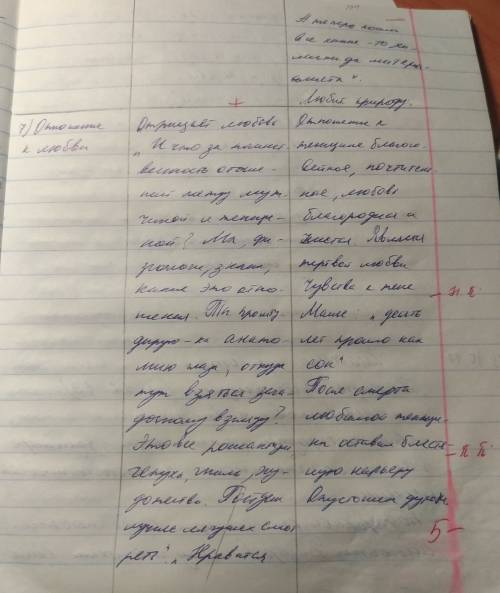 А теперь пошли
все какие-то хи-
мики да матери-
алисты".
Любит природу.
7) Отношение
к любви
Отрицает любовь
"И что за таинст-
венность отноше-
ний между муж-
чиной и женщи-
ной? Мы, фи-
зиологи, знаем,
какие это отно-
шения. Ты прошту-
дируй-ка анато-
мию глаз, откуда
тут взяться зага-
дочному взгляду?
Это все романтизм
чепуха, гниль, ху-
дожество. Пойдем
лучше жука смот
реть". "Нравится
Отношение к
женщине благого-
вейное, почтитель-
ное, любовь
благородная и
чистая. Являлся
жертвой любви
Чувства к жене
Маше: "десять
лет прошло как
сон"
После смерти
любимой женщи-
ны оставил блестя-
щую карьеру
Опустошен духовно
5-